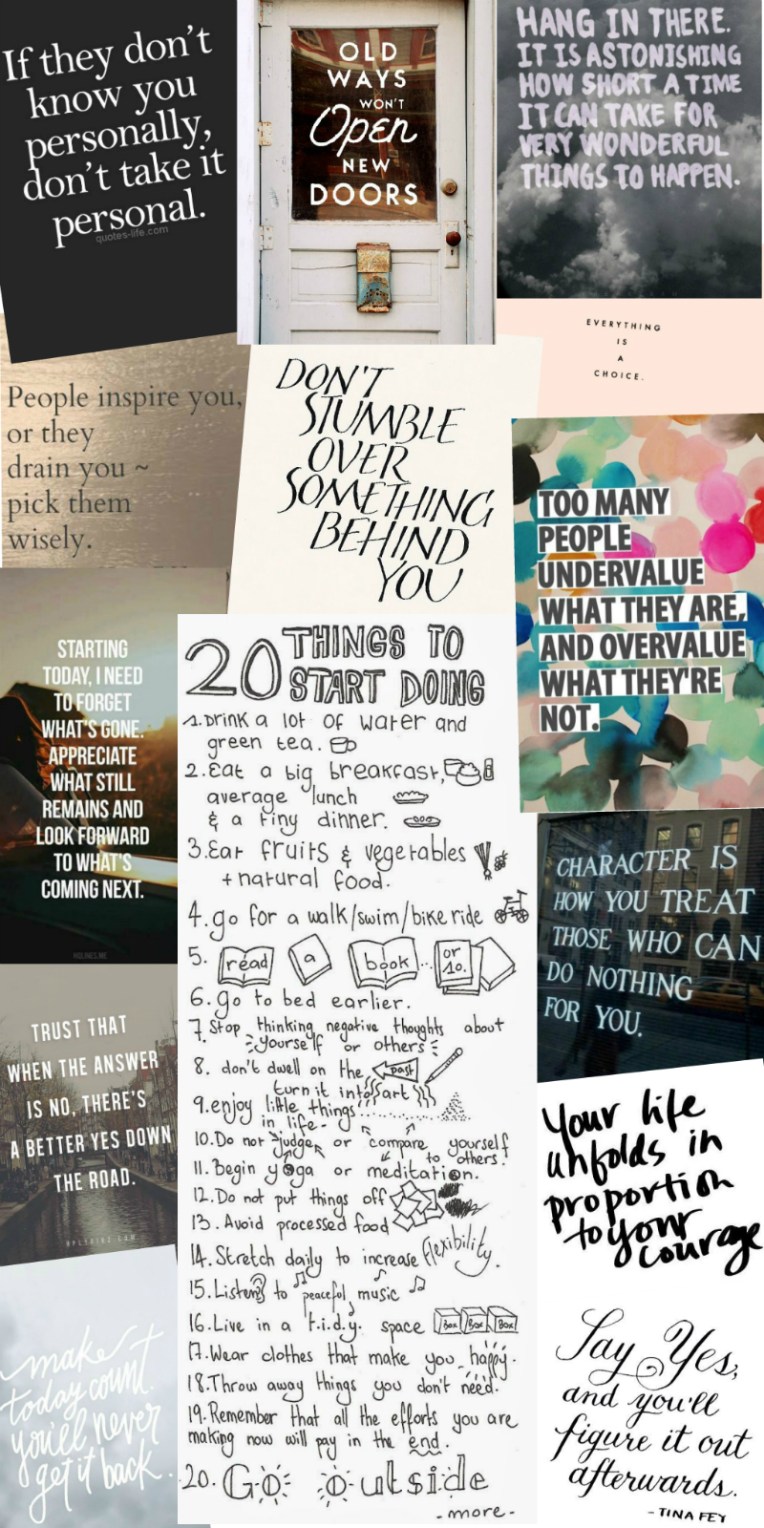 If they don't
know you
personally,
don't take it
personal.
quotes-life.com
OLD
WAYS
WON'T
Open
NEW
DOORS
HANG IN THERE.
IT IS ASTONISHING
HOW SHORT A TIME
IT CAN TAKE FOR
VERY WONDERFUL
THINGS TO HAPPEN.
EVERYTHING
IS
A
CHOICE.
People inspire you,
or they
drain you ~
pick them
wisely.
DON'T
STUMBLE
OVER
SOMETHING
BEHIND
YOU
TOO MANY
PEOPLE
UNDERVALUE
WHAT THEY ARE,
AND OVERVALUE
WHAT THEY'RE
NOT.
STARTING
TODAY, I NEED
TO FORGET
WHAT'S GONE.
APPRECIATE
WHAT STILL
REMAINS AND
LOOK FORWARD
TO WHAT'S
COMING NEXT.
20 THINGS TO
START DOING
1. Drink a lot of water and
green tea.
2. Eat a big breakfast,
average lunch
& a tiny dinner.
3. Eat fruits & vegetables
+ natural food.
4. go for a walk/swim/bike ride
5. read a book... or 10.
6. go to bed earlier.
7. Stop thinking negative thoughts about
yourself or others
8. don't dwell on the past
turn it into art
9. enjoy little things
in life
10. Do not judge or compare yourself
to others!
11. Begin yoga or meditation.
12. Do not put things off
13. Avoid processed food
14. Stretch daily to increase flexibility.
15. Listen to peaceful music
16. Live in a t.i.d.y. space Box Box Box
17. Wear clothes that make you happy.
18. Throw away things you don't need.
19. Remember that all the efforts you are
making now will pay in the end.
20. Go outside
- more -
CHARACTER IS
HOW YOU TREAT
THOSE WHO CAN
DO NOTHING
FOR YOU.
TRUST THAT
WHEN THE ANSWER
IS NO, THERE'S
A BETTER YES DOWN
THE ROAD.
Your life
unfolds in
proportion
to your
courage
make
today count.
you'll never
get it back.
Say Yes,
and you'll
figure it out
afterwards.
- TINA FEY